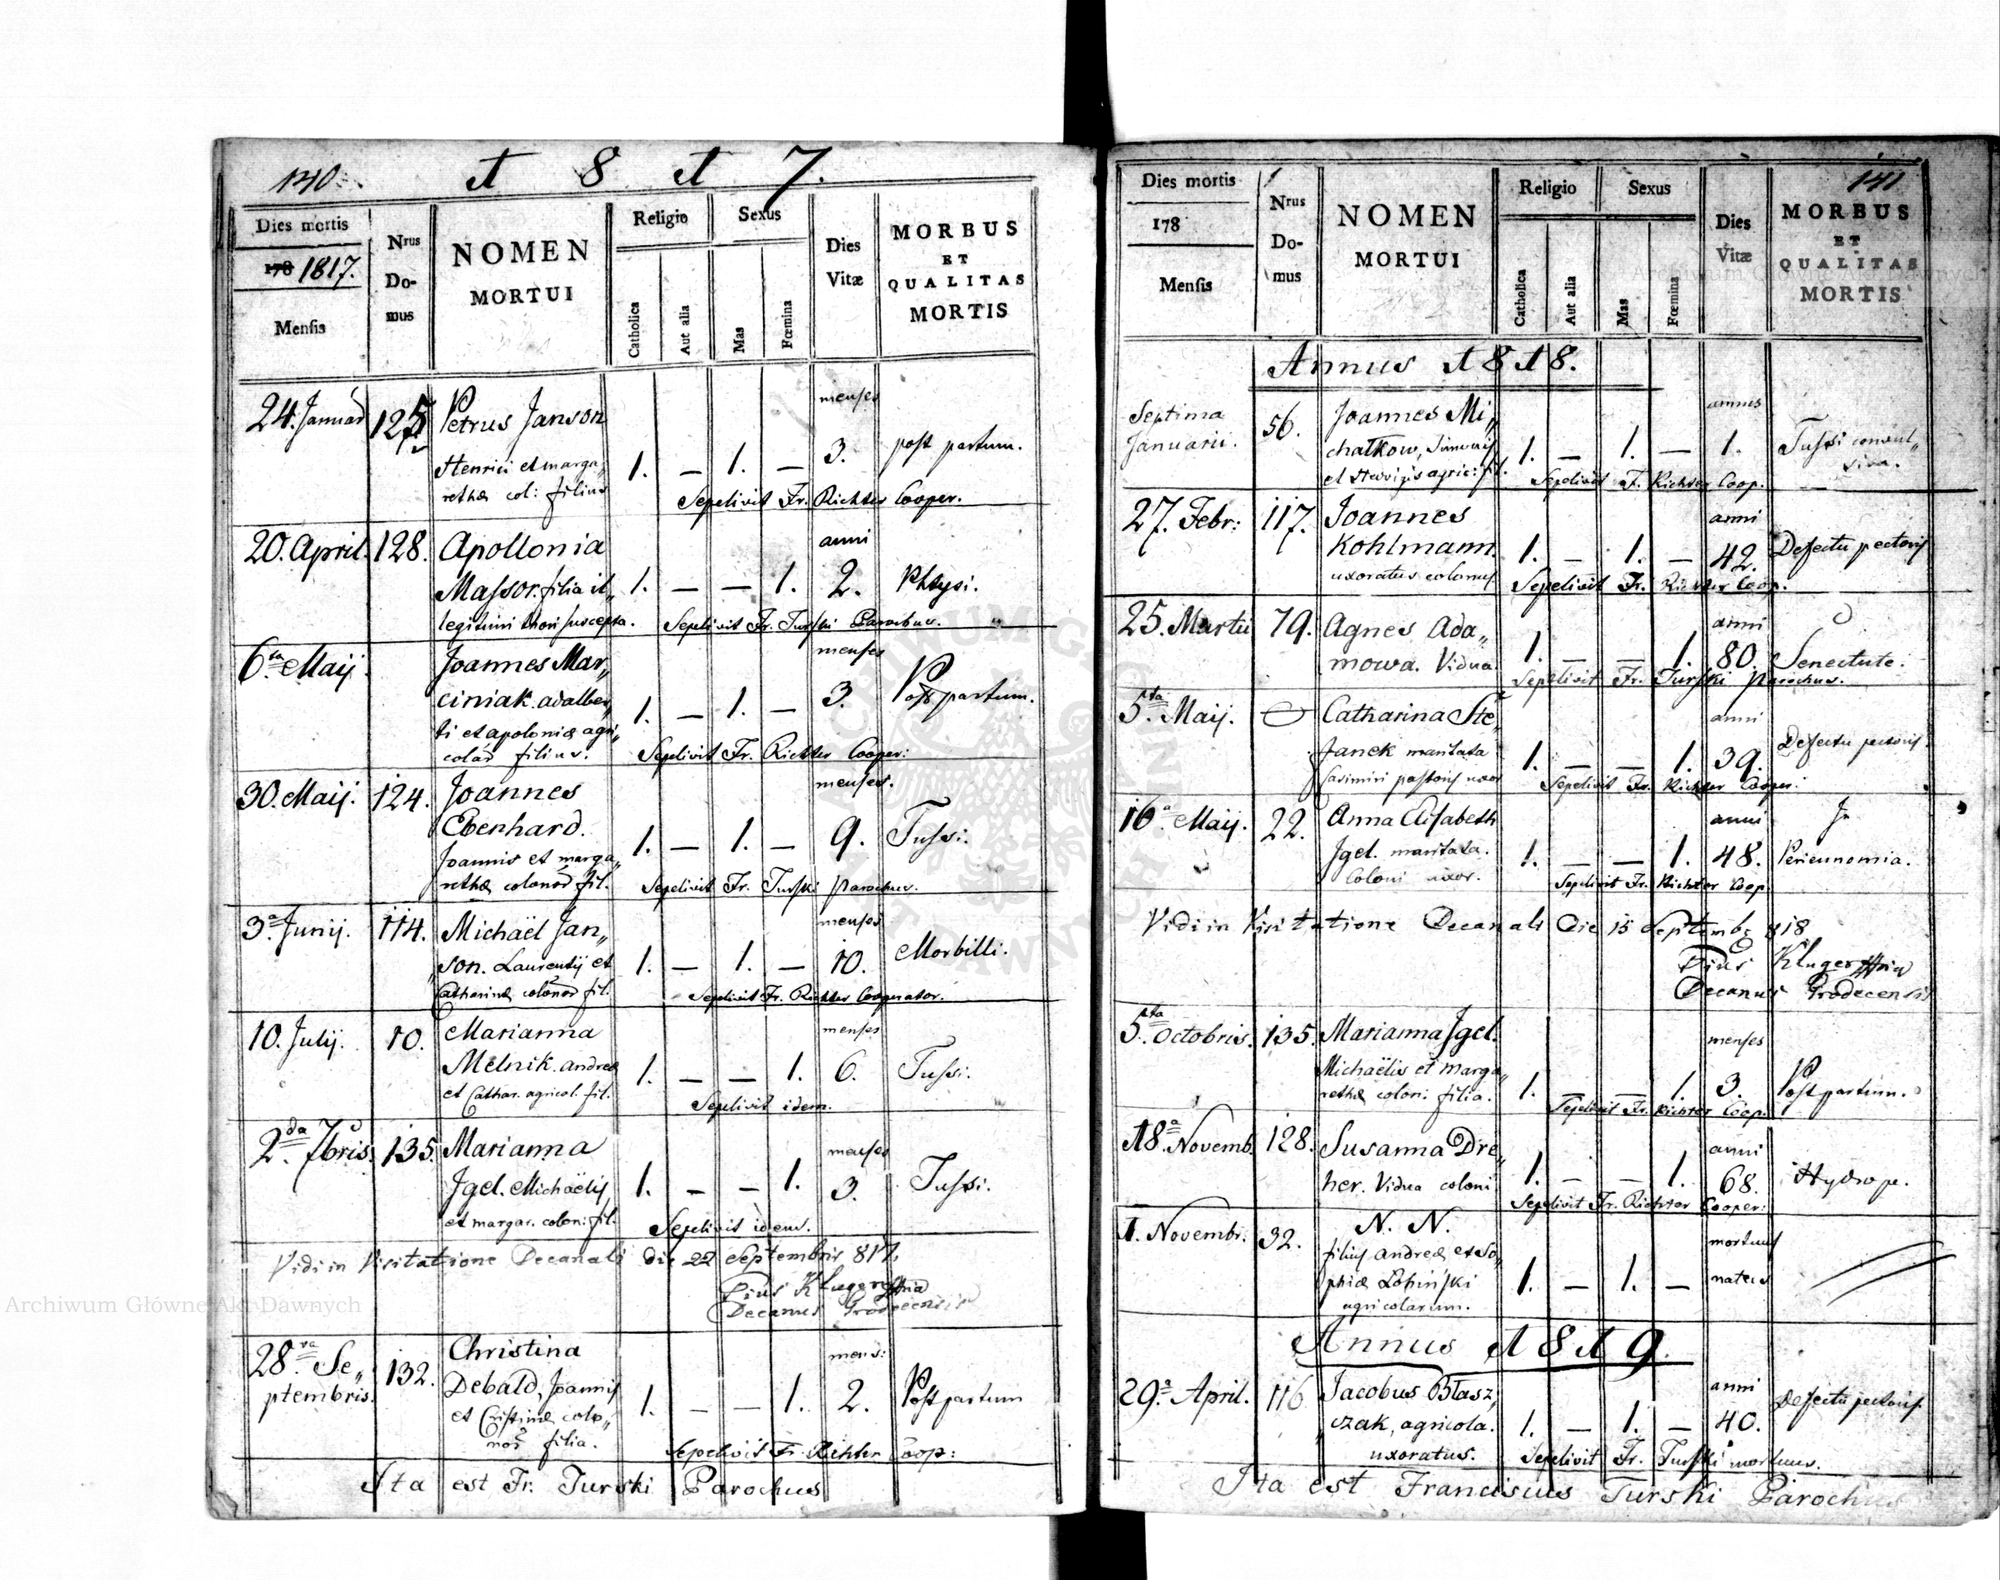 140.
1 8 1 7.
Dies mortis
178 1817.
Mensis
Nrus Domus
NOMEN
MORTUI
Religio
Catholica
Aut alia
Sexus
Mas
Fœmina
Dies
Vitæ
MORBUS
ET
QUALITAS
MORTIS
24. Januar 125 Petrus Janson menses
Henrici et marga„ 1. — 1. — 3. post partum.
rethæ col: filius
Sepelivit Fr. Richter Cooper.
20. April. 128. Apollonia anni
Massor. filia il„ 1. — — 1. 2. Phtysi.
legitimi thori suscepta.
Sepelivit Fr. Turski Parochus.
6ta Maij. Joannes Mar„ menses
ciniak. adalber„ 1. — 1. — 3. Post partum.
ti et apoloniæ agri„
colar̃ filius.
Sepelivit Fr. Richter Cooper:
30. Maij. 124. Joannes menses.
Ebenhard. 1. — 1. — 9. Tussi.
Joannis et marga„
rethæ colonor̃ fil.
Sepelivit Fr. Turski Parochus.
3a Junij. 114. Michaël Jan„ menses
„son. Laurentij et 1. — 1. — 10. Morbilli.
Catharinæ colonor̃ fil.
Sepelivit Fr. Richter Cooperator.
10. Julij. 10. Marianna menses
Melnik. andreæ 1. — — 1. 6. Tussi.
et Cathar. agricol. fil.
Sepelivit idem.
2da 7bris. 135. Marianna menses
Jgel. Michaëlis 1. — — 1. 3. Tussi.
et margar. colon: fil.
Sepelivit idem.
Vidi in Visitatione Decanali die 22 Septembris 817.
Pius Kluger
Decanus Grodecensis
28va Se„ 132. Christina mens:
ptembris. Debald, Joannis 1. — — 1. 2. Post partum
et Cristinæ colo„
nor̃ filia.
Sepelivit Fr. Richter Coop:
Ita est Fr. Turski Parochus
141
Dies mortis
178
Mensis
Nrus Domus
NOMEN
MORTUI
Religio
Catholica
Aut alia
Sexus
Mas
Fœmina
Dies
Vitæ
MORBUS
ET
QUALITAS
MORTIS
Annus 1818.
Septima 56. Joannes Mi„ annus
Januarii. chatkow, 1. — 1. — 1. Tussi convul„
siva.
et Hedvigis agric: fil.
Sepelivit F. Richter Coop.
27. Febr: 117. Joannes anni
Kohlmann 1. — 1. — 42. Defectu pectoris
uxoratus colonus
Sepelivit Fr. Richter Coop.
25. Martii 79. Agnes Ada„ anni
mowa. Vidua. 1. — — 1. 80. Senectute.
Sepelivit Fr. Turski Parochus.
5ta Maij. Catharina Ste„ anni
Janek maritata 1. — — 1. 39. Defectu pectoris.
Casimiri pastoris uxor
Sepelivit Fr. Richter Cooper:
16a Maij. 22. Anna Elisabeth anni In
Jgel. maritata. 1. — — 1. 48. Perieunomia.
Coloni uxor.
Sepelivit Fr. Richter Coop.
Vidi in Visitatione Decanali Die 15 Septembr 818
Pius Kluger
Decanus Grodecensis
5ta Octobris. 135. Marianna Jgel. menses
Michaëlis et Marga„ 1. — — 1. 3. Post partum.
rethæ colon: filia.
Sepelivit Fr. Richter Coop.
18a Novemb. 128. Susanna Dre„ anni
her. Vidua coloni 1. — — 1. 68. Hydrope.
Sepelivit Fr. Richter Cooper:
1. Novembr. 32. N. N. mortuus
filius Andreæ et So„ 1. — 1. — natus
phiæ Lobiński
agricolarum.
Annus 1819.
29a April. 116 Jacobus Błasz„ anni
„czak, agricola. 1. — 1. — 40. Defectu pectoris.
uxoratus.
Sepelivit Fr. Turski
Ita est Franciscus Turski Parochus
Archiwum Główne Akt Dawnych
Archiwum Główne Akt Dawnych
ARCHIWUM GŁÓWNE AKT DAWNYCH